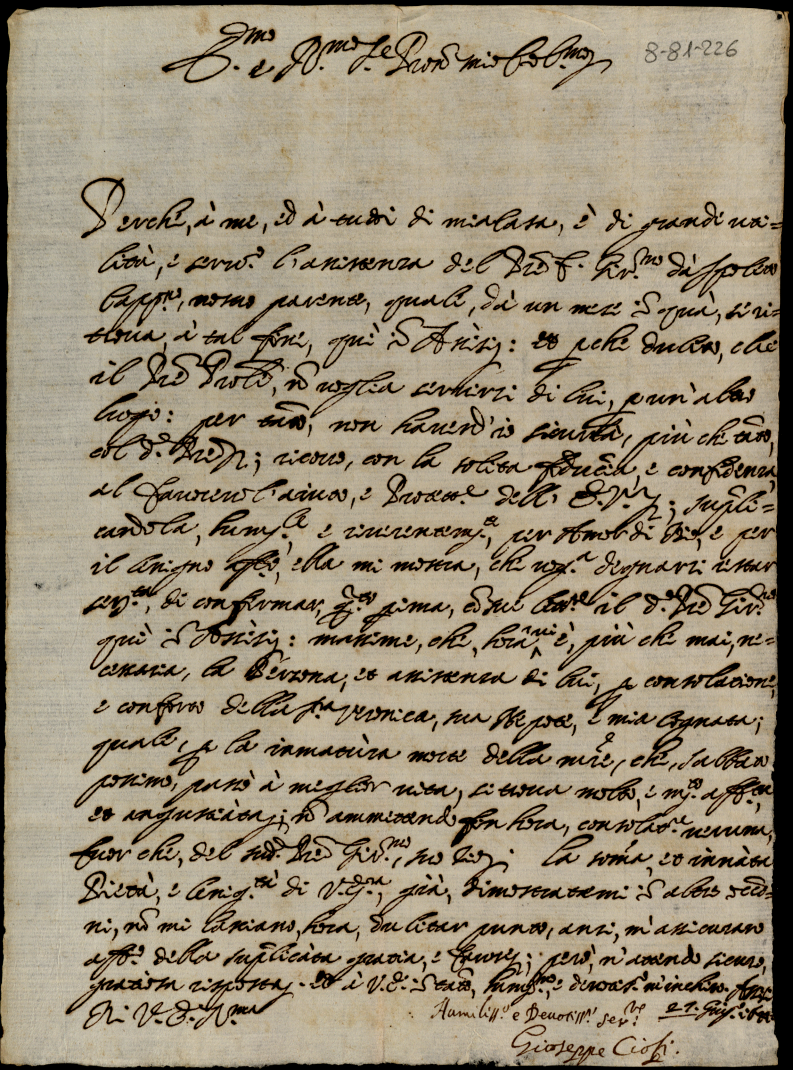 E.mo e R.mo S.re Pron mio Col.mo
8-81-226
Perche, à me, ed à tutti di mia casa, è di grande uti=
lità, e serv.o l'assistenza del Pre f. Gir.mo dà Spoleto
Capp.no, nostro parente, quale, dà un mese in quà, si ri=
trova, à tal fine, quì in Assisi: et perche dubito, che
il Pre Prole, nō voglia servirsi di lui, p un'altro
luogo: per tāto, non havend'io sicurtà, più che tāto,
col d.o Pre; ricorro, con la solita fiducia, e confidenza
al favorevol'aiuto, e Protet.e dell' E.V.; suppli=
candola, hum.te e riverentem.te, per Amor di Dio, e per
il benigno aff.o, ella mi mostra, che degnarsi restar
ser.ta, di confirmar, p.ma, il d.o Pre Gir.mo
quì in Assisi: massime, che, hora è, più che mai, ne=
cessaria, la Persona, et assistenza di lui, p consolatione,
e conforto della S.ra Veronica, sua Nepote, e mia Cognata;
quale, p la inmatùra morte della mre, che, Sabbato
possimo, passò à meglior vita, si trova molto, e aff.ta
et angustiàta; nō ammettendo fin hora, consolat.e veruna,
fuor che, del sud.o Pre Gir.mo, suo Zio; la somma, et innàta
Pietà, e benig.tà di V.E., già, dimostratami in altre occō=
ni, nō mi lasciano, hora, dubitar punto, anzi, m'assicurano
aff.o della supplicàta gratia, e favore; però, n'attendo sicuro,
gratiosa risposta. et à V.E. in tāto, hum.te, e devotam.te m'inchino.
Di V. E. R.ma
Humiliss.o e Devotiss.o Ser.re
Gioseppe Ciofi.